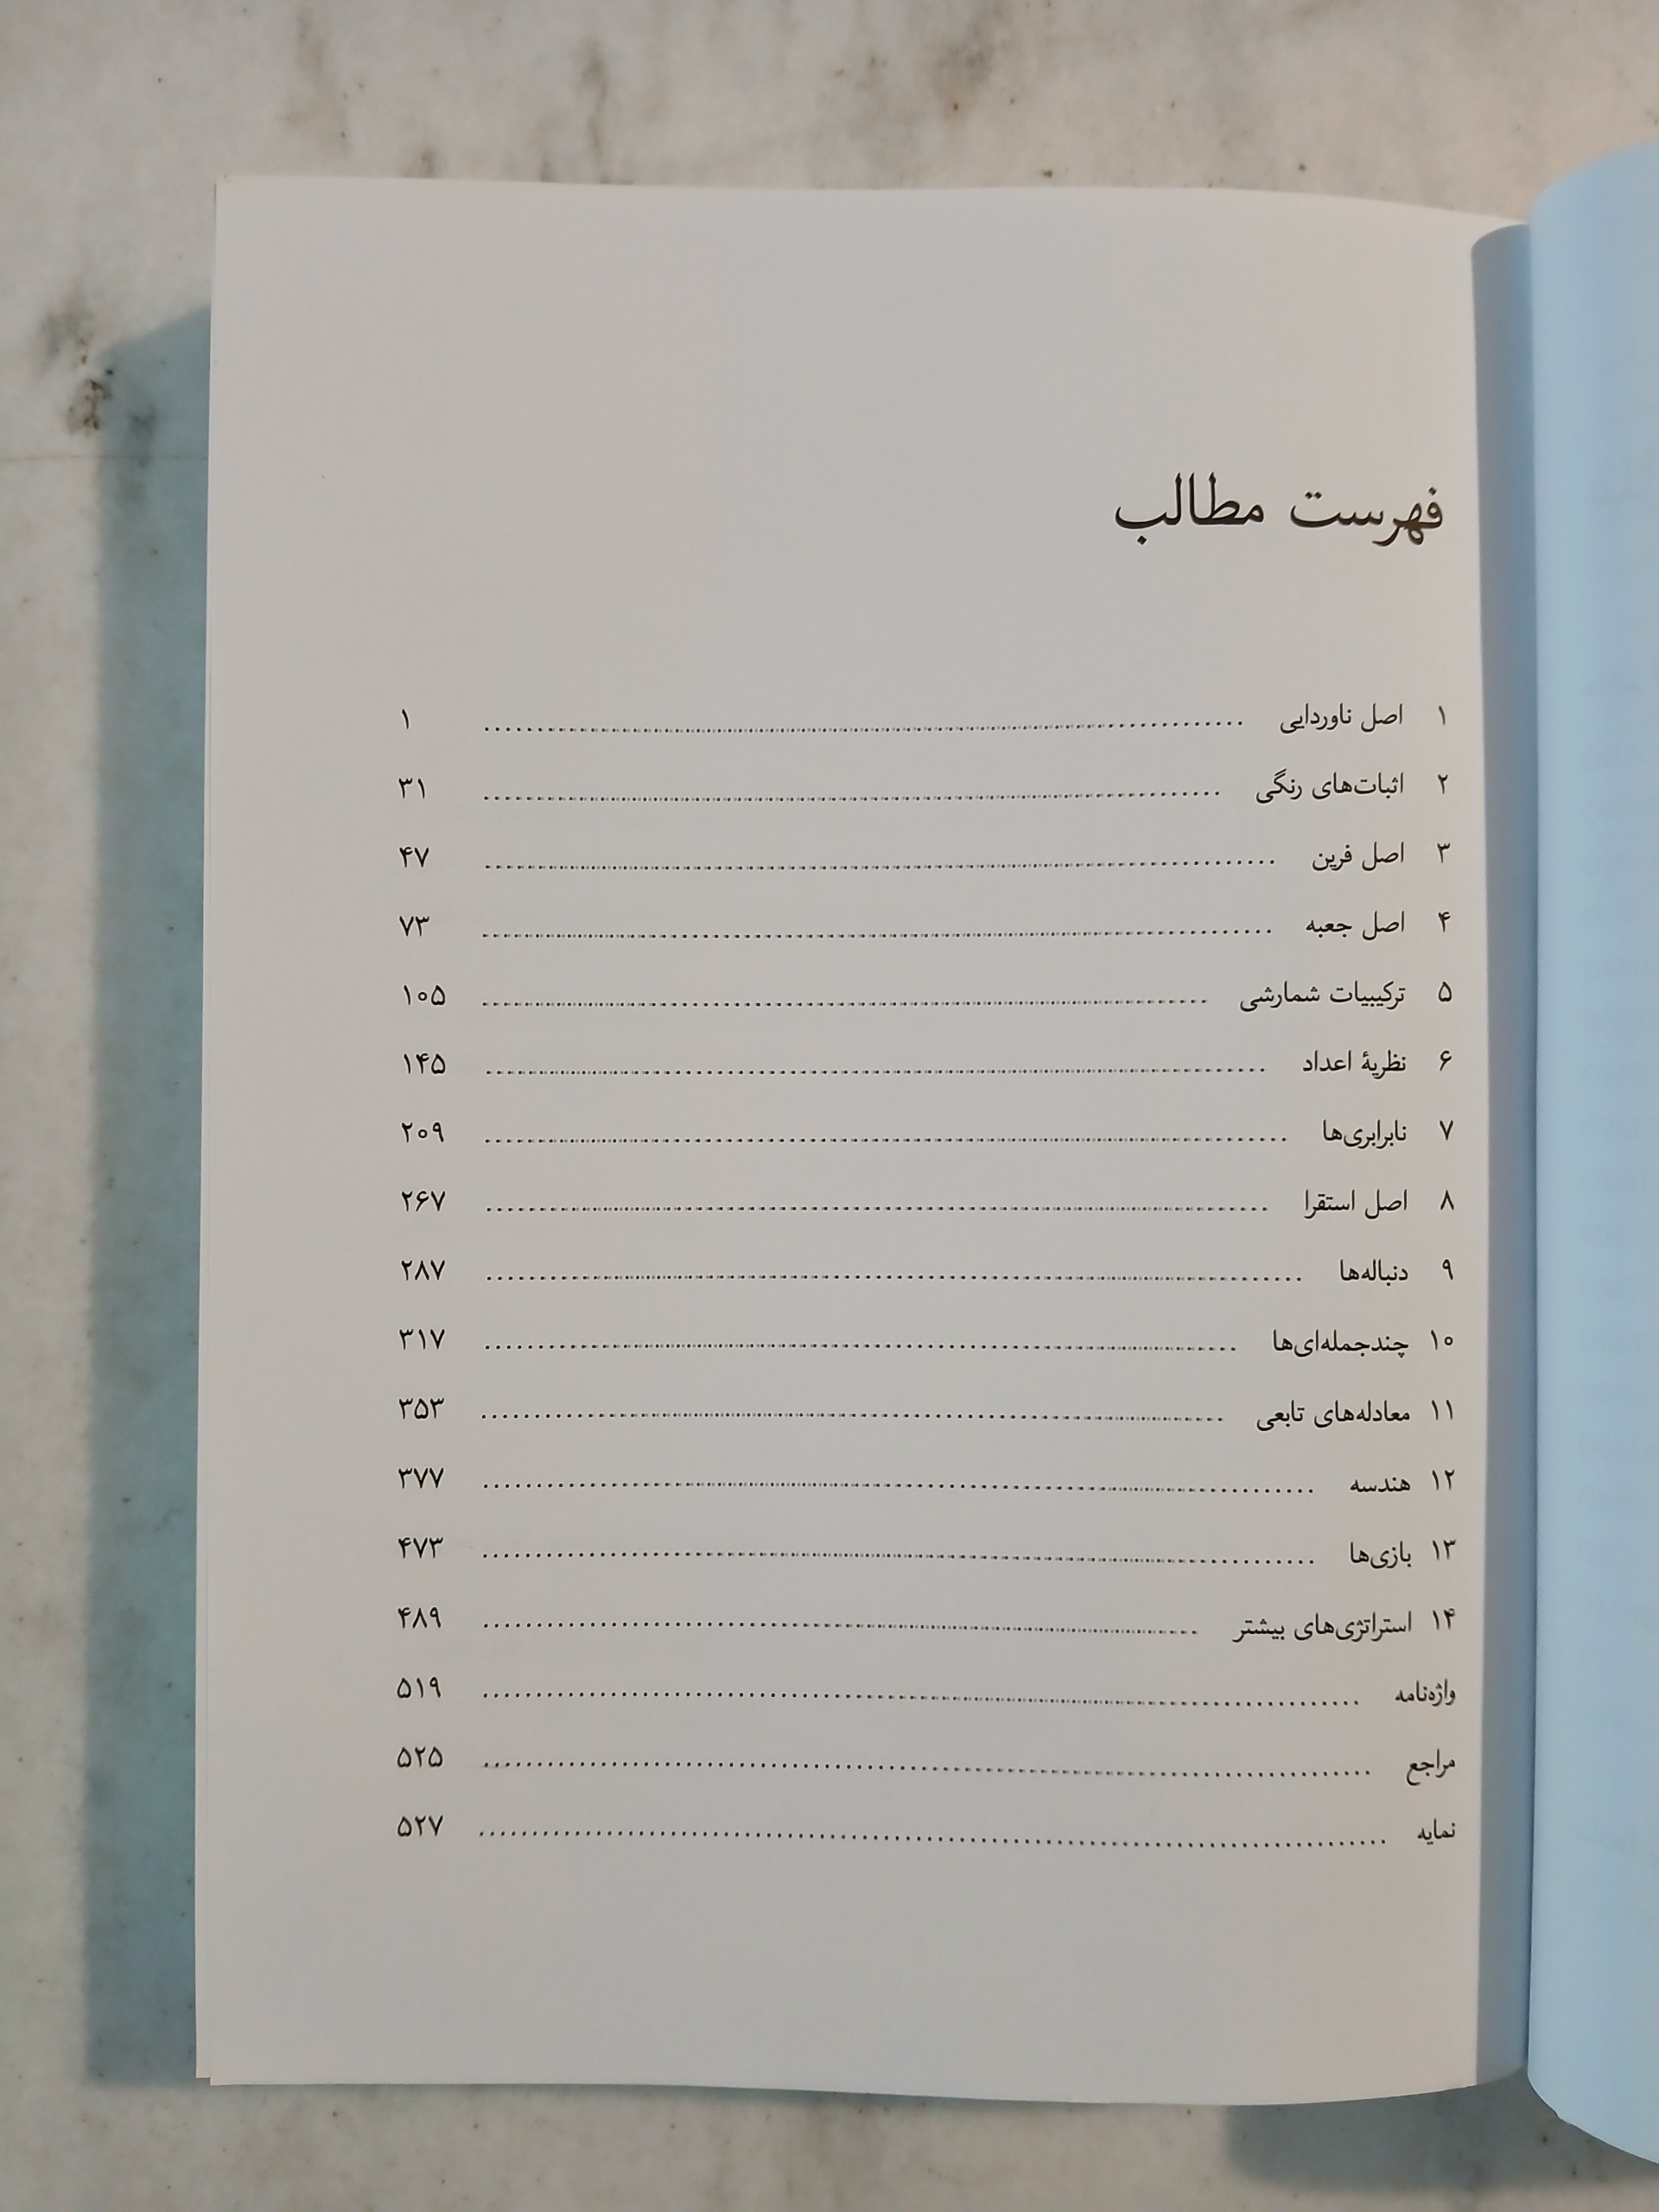 فهرست مطالب
۱ اصل ناوردایی ........ ۱
۲ اثبات‌های رنگی ........ ۳۱
۳ اصل فرین ........ ۴۷
۴ اصل جعبه ........ ۷۳
۵ ترکیبیات شمارشی ........ ۱۰۵
۶ نظریهٔ اعداد ........ ۱۴۵
۷ نابرابری‌ها ........ ۲۰۹
۸ اصل استقرا ........ ۲۶۷
۹ دنباله‌ها ........ ۲۸۷
۱۰ چندجمله‌ای‌ها ........ ۳۱۷
۱۱ معادله‌های تابعی ........ ۳۵۳
۱۲ هندسه ........ ۳۷۷
۱۳ بازی‌ها ........ ۴۷۳
۱۴ استراتژی‌های بیشتر ........ ۴۸۹
واژه‌نامه ........ ۵۱۹
مراجع ........ ۵۲۵
نمایه ........ ۵۲۷